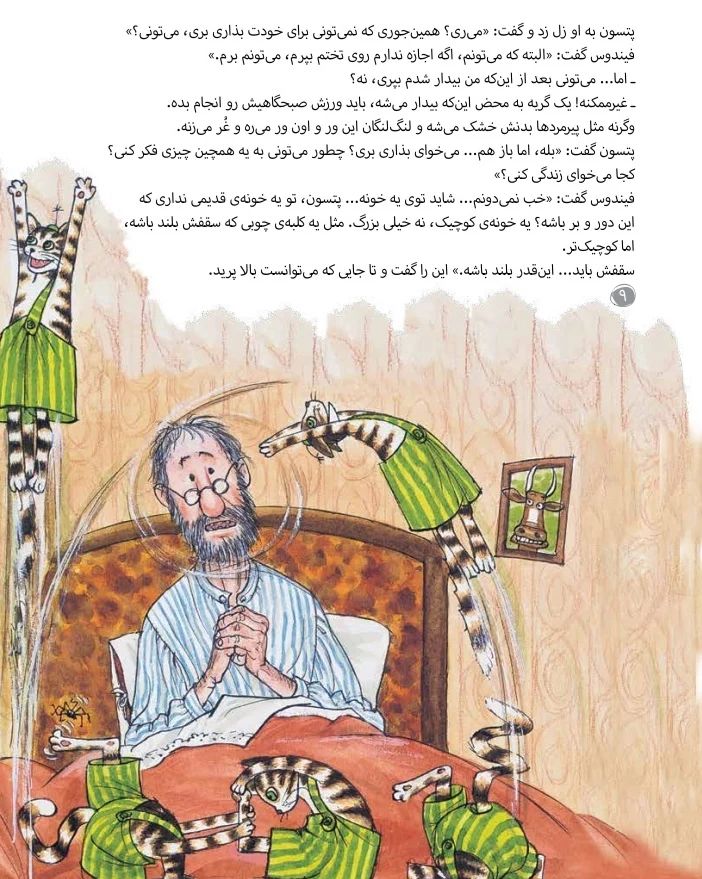 پتسون به او زل زد و گفت: «می‌ری؟ همین‌جوری که نمی‌تونی برای خودت بذاری بری، می‌تونی؟»
فیندوس گفت: «البته که می‌تونم، اگه اجازه ندارم روی تختم بپرم، می‌تونم برم.»
ـ اما... می‌تونی بعد از این‌که من بیدار شدم بپری، نه؟
ـ غیرممکنه! یک گربه به محض این‌که بیدار می‌شه، باید ورزش صبحگاهیش رو انجام بده.
وگرنه مثل پیرمردها بدنش خشک می‌شه و لنگ‌لنگان این ور و اون ور می‌ره و غُر می‌زنه.
پتسون گفت: «بله، اما باز هم... می‌خوای بذاری بری؟ چطور می‌تونی به یه همچین چیزی فکر کنی؟
کجا می‌خوای زندگی کنی؟»
فیندوس گفت: «خب نمی‌دونم... شاید توی یه خونه... پتسون، تو یه خونه‌ی قدیمی نداری که
این دور و بر باشه؟ یه خونه‌ی کوچیک، نه خیلی بزرگ. مثل یه کلبه‌ی چوبی که سقفش بلند باشه،
اما کوچیک‌تر.
سقفش باید... این‌قدر بلند باشه.» این را گفت و تا جایی که می‌توانست بالا پرید.
۹